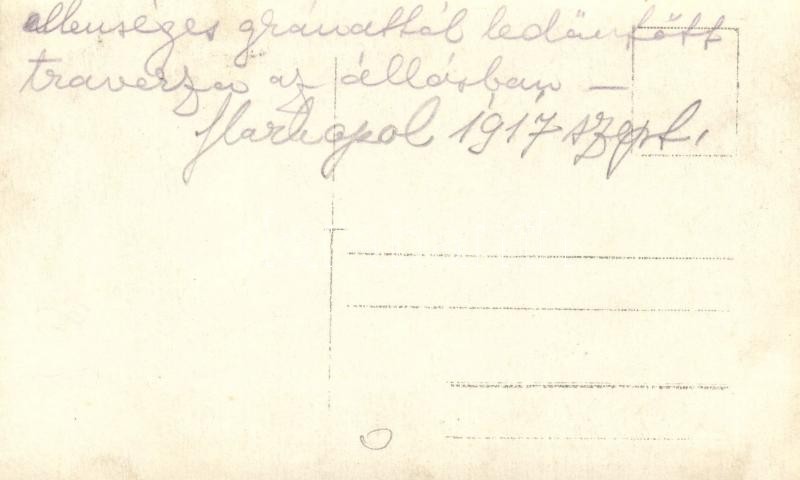 ellenséges gránattól ledöntött
traverza az állásban —
Markopol 1917 szept.